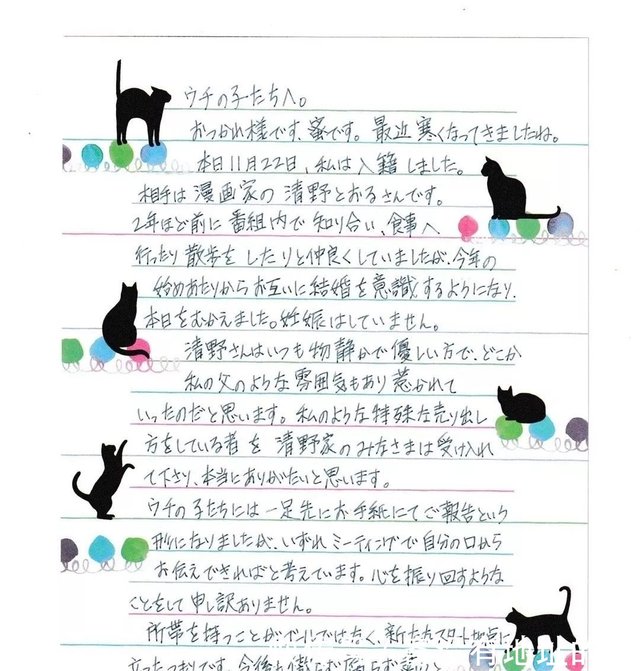 ウチの子たちへ。
おつかれ様です、蜜です。最近寒くなってきましたね。
本日11月22日、私は入籍しました。
相手は漫画家の清野とおるさんです。
2年ほど前に番組内で知り合い、食事へ
行ったり散歩をしたりと仲良くしていましたが、今年の
始めあたりからお互いに結婚を意識するようになり、
本日をむかえました。妊娠はしていません。
清野さんはいつも物静かで優しい方で、どこか
私の父のような雰囲気もあり惹かれて
いったのだと思います。私のような特殊な売り出し
方をしている者を清野家のみなさまは受け入れ
て下さり、本当にありがたいと思います。
ウチの子たちには一足先にお手紙にてご報告という
形になりましたが、いずれミーティングで自分の口から
お伝えできればと考えています。心を振り回すような
ことをして申し訳ありません。
所帯を持つことがゴールではなく、新たなスタート地点に
立ったつもりです。今後も
有地址的